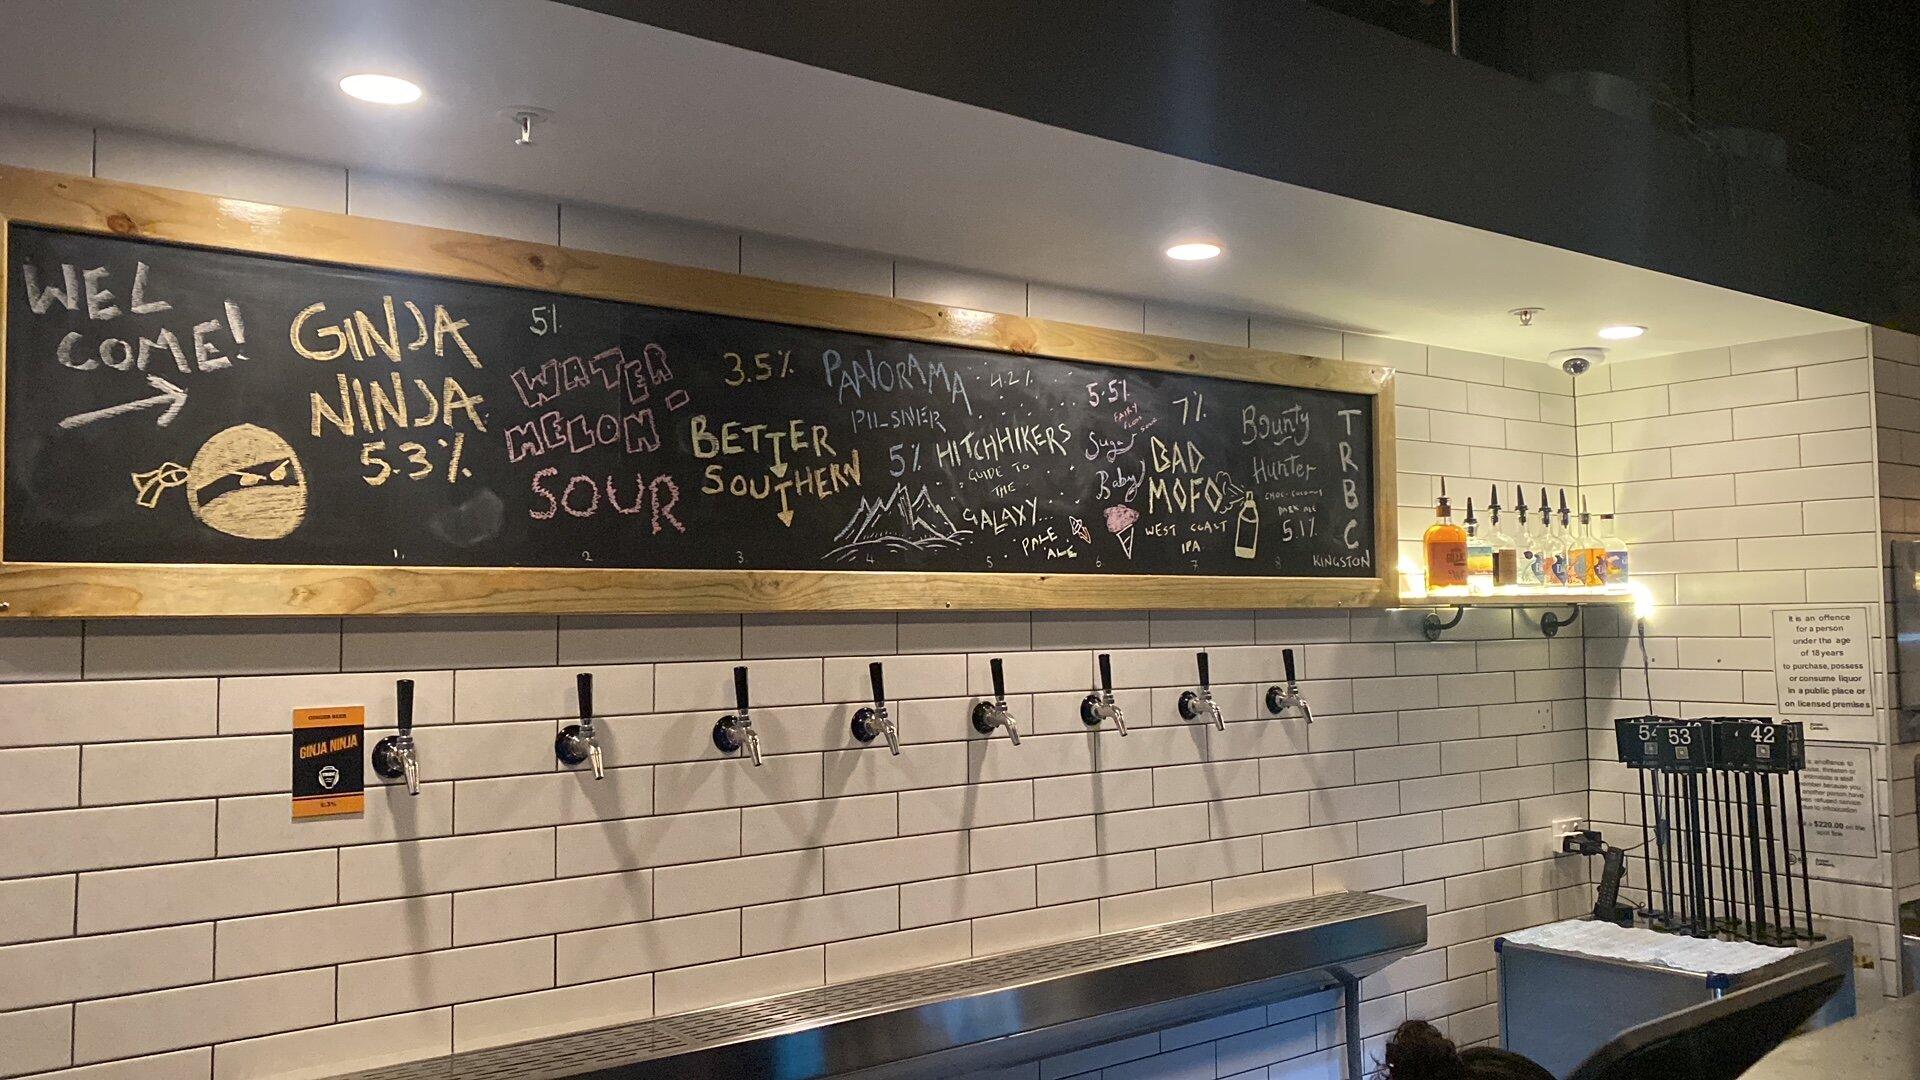 WEL
COME!
GINJA
NINJA
5.3%
1.
5%
WATER
MELON
SOUR
2
3.5%
BETTER
SOUTHERN
3.
PANORAMA
PILSNER
5%
4
4.2%
HITCHHIKERS
GUIDE TO
THE
GALAXY...
PALE
ALE
5
5.5%
FAIRY
FLOSS
SOUR
Suga
Baby
6
7%
BAD
MOFO
WEST COAST
IPA
7
Bounty
Hunter
DARK ALE
5.1%
8
T
R
B
C
KINGSTON
GINGER BEER
GINJA NINJA
5.3%
It is an offence
for a person
under the age
of 18 years
to purchase, possess
or consume liquor
in a public place or
on licensed premises
54
53
42
51
intimidate a staff
member because you
another person have
been refused service
due to intoxication
$220.00 on the
spot fine